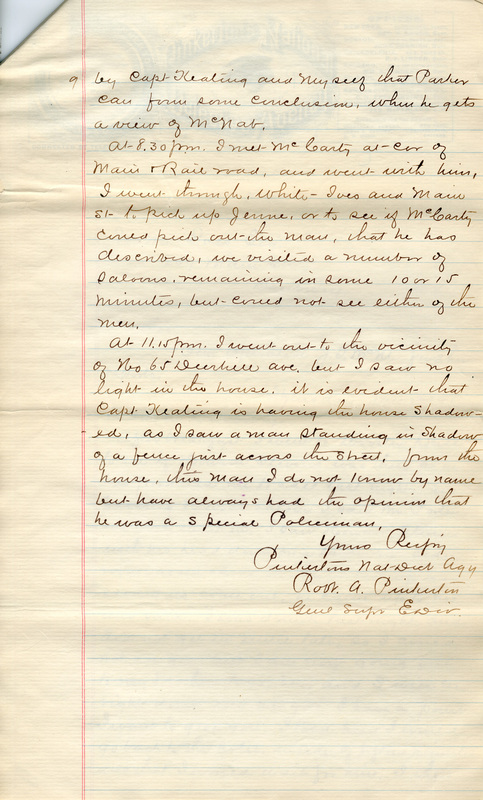 9 by Capt Keating and Myself that Parker
can form some conclusion, when he gets
a view of McNab.
At 8.30 pm. I met McCarty at cor of
Main & Rail road, and went with him,
I went through, White - Ives and Main
St - to pick up Jenne, or to see if McCarty
coued pick out the man, that he has
described, we visited a number of
Saloons. remaining in some 10 or 15
minutes, but coued not see either of the
men.
At 11.15 pm. I went out to the vicinity
of No 65 Deerhill ave. but I saw no
light in the house. it is evident that
Capt Keating is having the house Shadow-
ed, as I saw a man Standing in Shadow
of a fence just across the Street, from the
house, this man I do not know by name
but have always had the opinion that
he was a Special Policeman,
Yours Respy
Pinkertons Nat Dect Agy
Robt. A. Pinkerton
Genl Supt E Div.